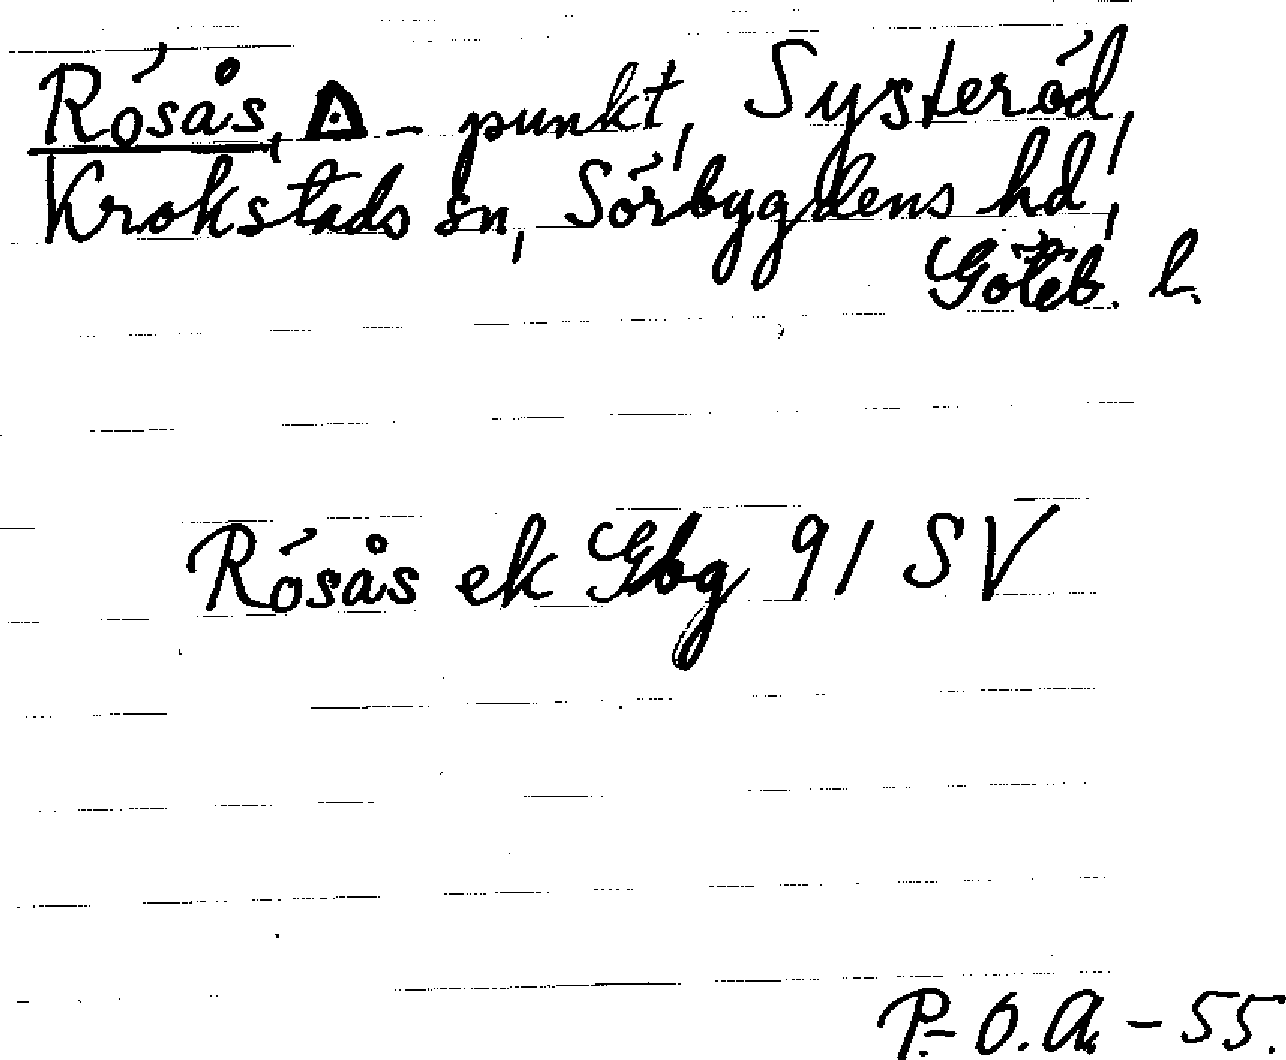 Rösås, △ - punkt, Systeröd,
Krokstads sn, Sörbygdens hd,
Göteb. l.
Rösås ek Gbg 91 SV
P.-O.A. - 55.